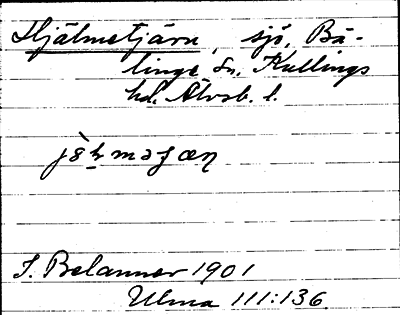 Hjälmetjärn, sjö, Bä-
linge sn, Kullings
hd. Älvsb. l.
S. Belanner 1901
Ulma 111:136